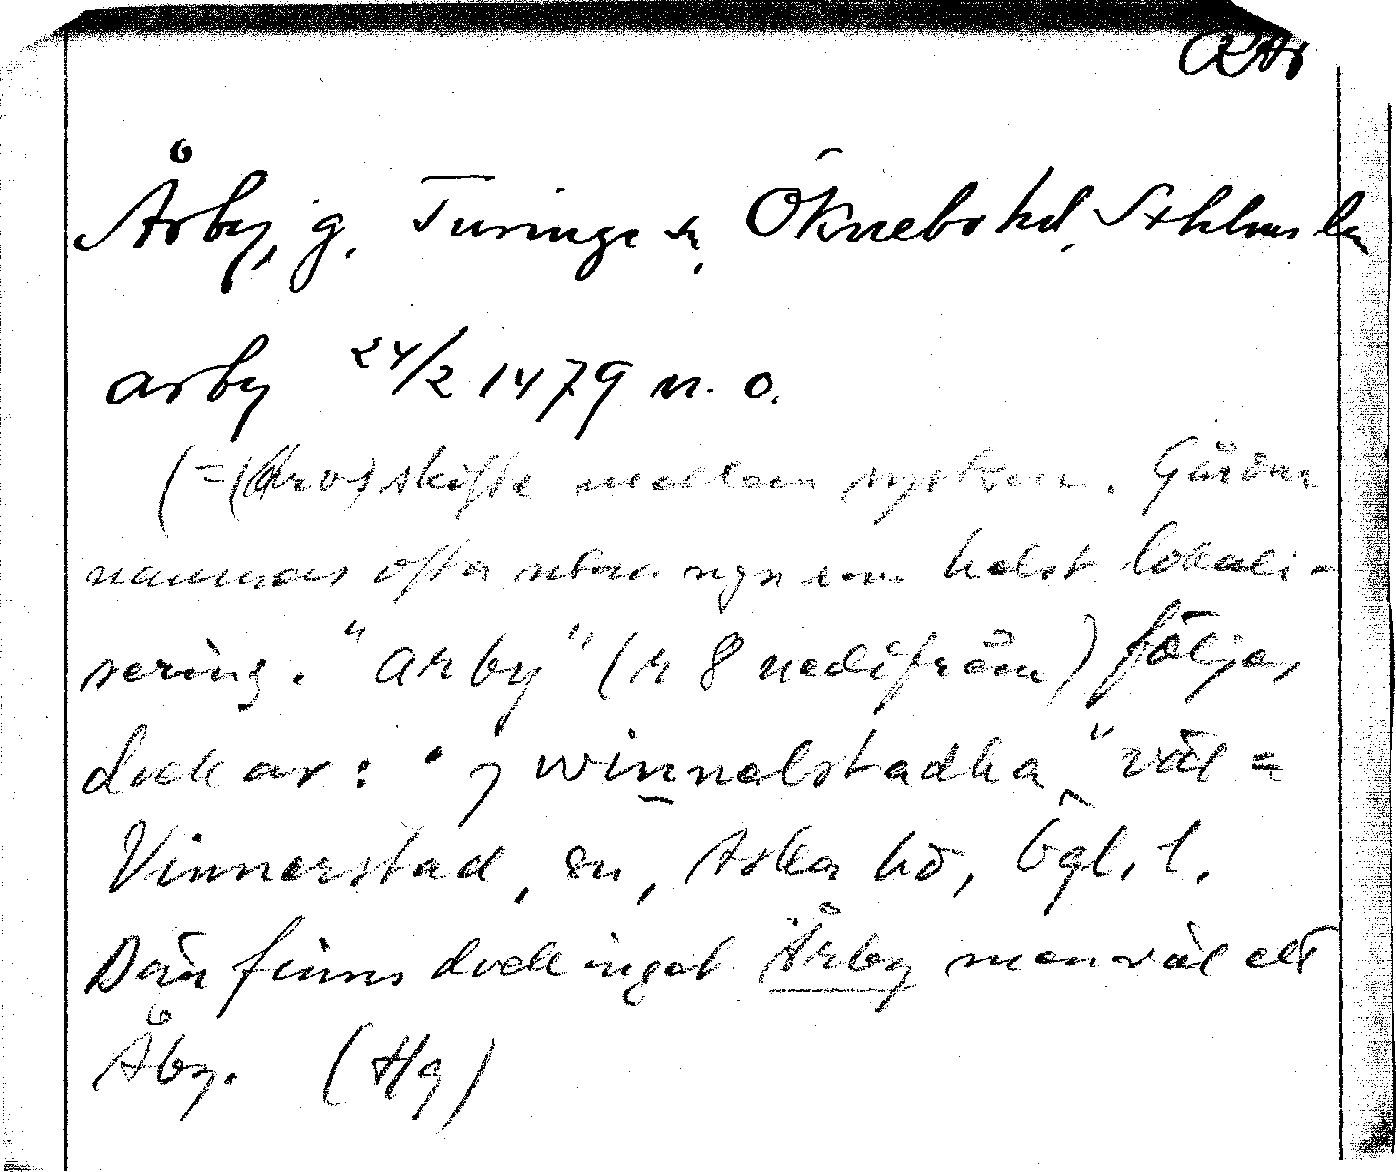 RA
Årby, g. Turinge sn, Öknebo hd. Sthlms län
arby 24/2 1479 n. o.
(=(Arvs)skifte mellan syskon. Gårdar
nämnas ofta utan ngn som helst lokali-
sering. "arby" (r 8 nedifrån) följes
dock av: "j winnelstadha" väl =
Vinnerstad, sn, Aska hd, Ögl. l.
Där finns dock inget Årby men väl ett
Åby. (Hg)